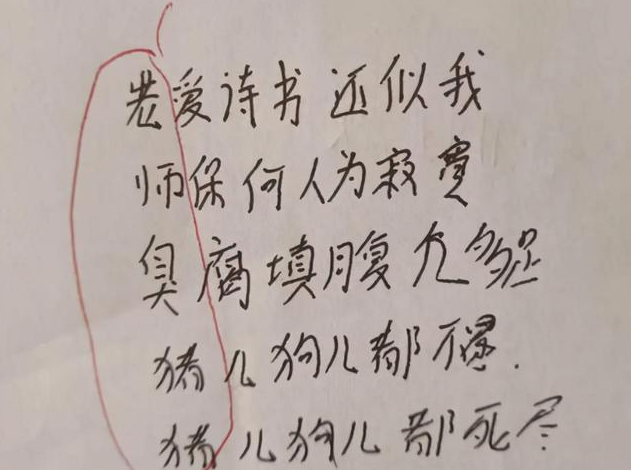 老爱诗书还似我
师保何人为寂
臭腐填腹
猪儿狗儿都不
猪儿狗儿都死尽